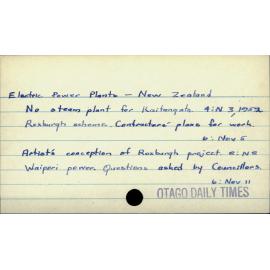 Electric Power Plants — New Zealand
No steam plant for Kaitangata 4: N 3, 1952
Roxburgh scheme. Contractors' plans for work.
6: Nov 5
Artist's conception of Roxburgh project 8: N8
Waipori power. Questions asked by Councillors.
6: Nov 11
OTAGO DAILY TIMES